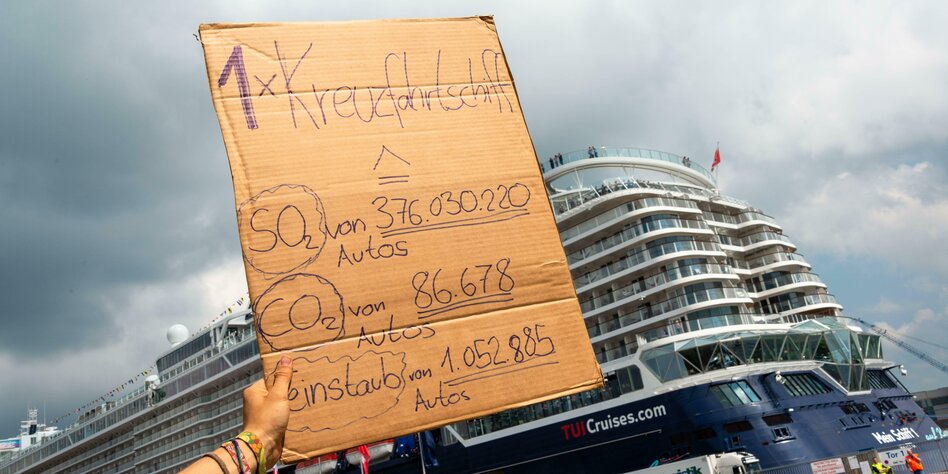 1x Kreuzfahrtschiff
≙
SO₂ von 376.030.220
Autos
CO₂ von 86.678
Autos
Feinstaub von 1.052.885
Autos
TUICruises.com
Mein Schiff 1
Tor 1